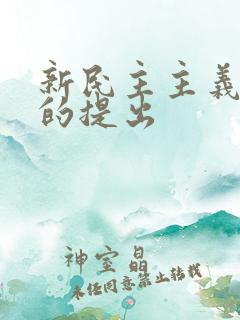 新民主主義
的提出
神室晶
未经同意禁止转载